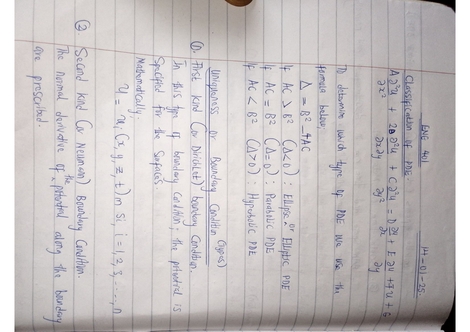 ENG 401 14-01-25.
Classification of PDE.
A ∂²u/∂x² + 2B ∂²u/∂x∂y + C ∂²u/∂y² = D ∂u/∂x + E ∂u/∂y + Fu + G
To determine which type of PDE we use the
formula below;
Δ = B² - 4AC
If AC > B² (Δ<0) : Ellipse or Elliptic PDE
If AC = B² (Δ=0) : Parabolic PDE
If AC < B² (Δ>0) : Hyperbolic PDE
Uniqueness or Boundary Condition (Types)
①. First kind (or Dirichlet) boundary Condition.
In this type of boundary Condition; the potential is
Specified for the Surfaces.
Mathematically,
U = ui (x, y, z, t) m si, i = 1, 2, 3, ...., n
②. Second kind (or Neumann) Boundary Condition.
The normal derivative of the potential along the boundary
are proscribed.